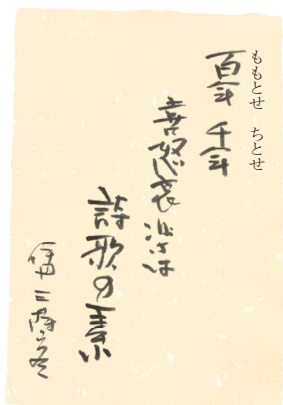 ももとせ ちとせ
百年 千年
喜怒哀楽は
詩歌の素